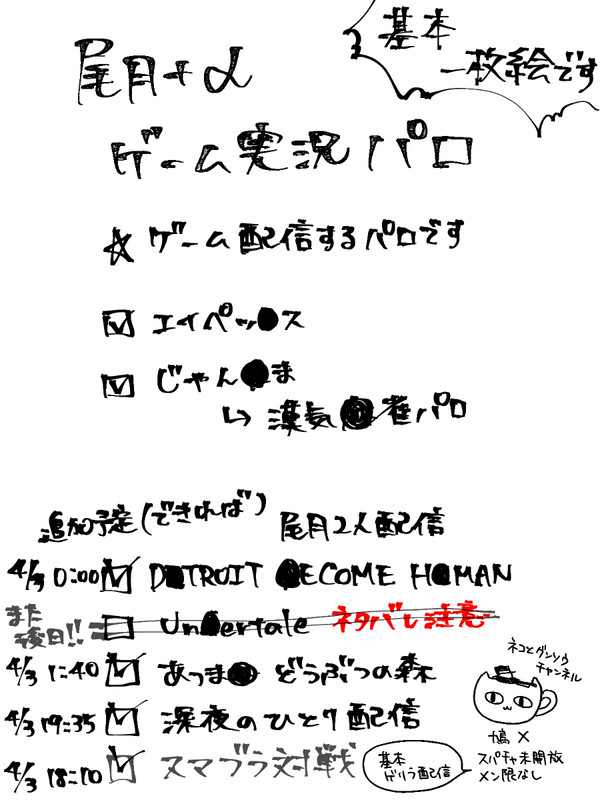 基本
一枚絵です
尾月+α
ゲーム実況パロ
☆ ゲーム配信するパロです
☑ エイペッ●ス
☑ じゃん●ま
↳ 漢気●雀パロ
追加予定(できれば) 尾月2人配信
4/3 0:00 ☑ D●TROIT ●ECOME H●MAN
また
後日!! □ Un●ertale ネタバレ注意
4/3 1:40 ☑ あつま● どうぶつの森
4/3 19:35 ☑ 深夜のひとり配信
4/3 18:10 ☑ スマブラ対戦
基本
ゲリラ配信
ネコとダンソウ
チャンネル
鳩×
スパチャ未開放
メン限なし